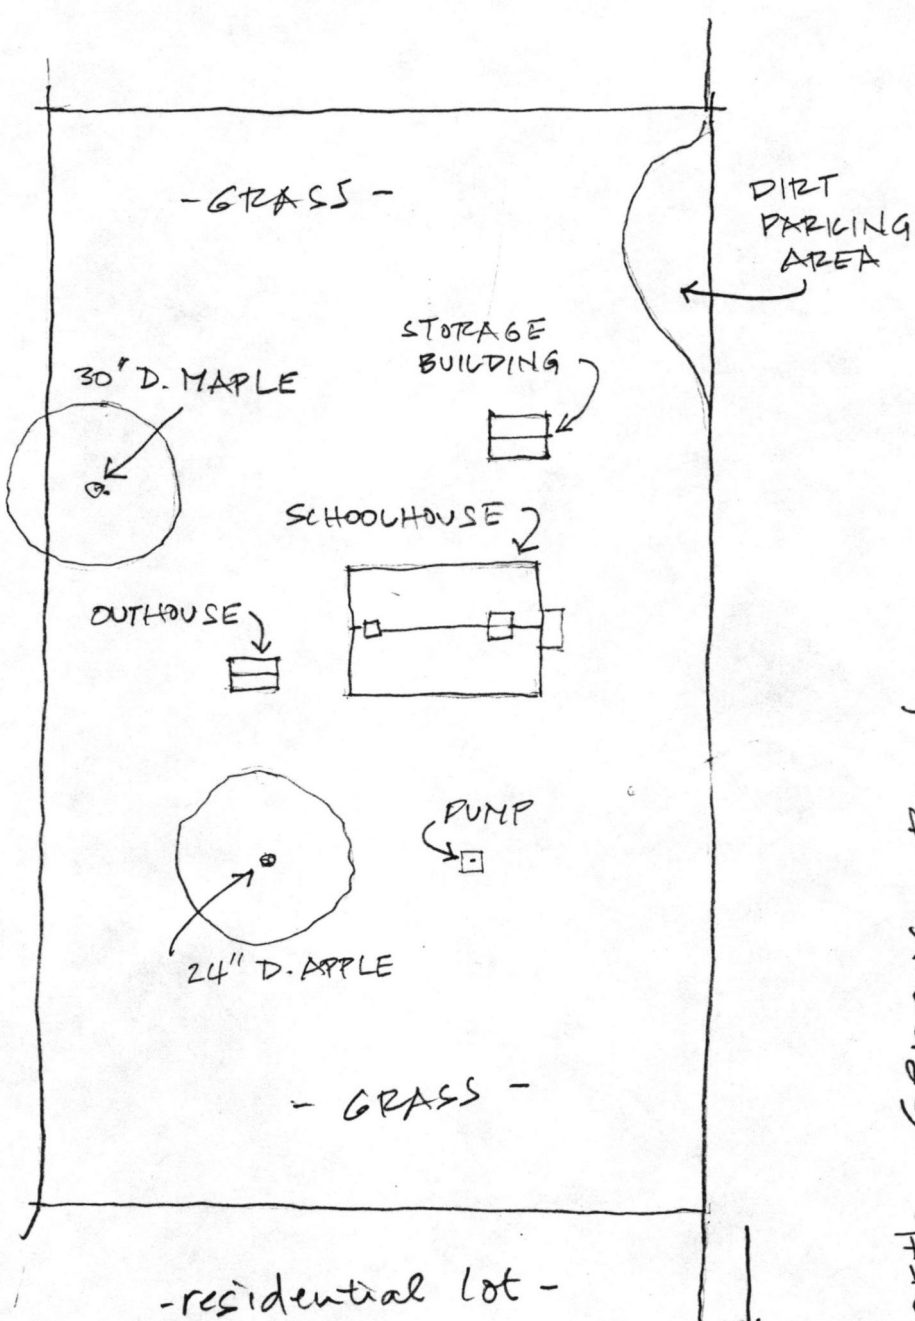 - GRASS -
DIRT
PARKING
AREA
STORAGE
BUILDING
30" D. MAPLE
SCHOOLHOUSE
OUTHOUSE
PUMP
24" D. APPLE
- GRASS -
- residential lot -